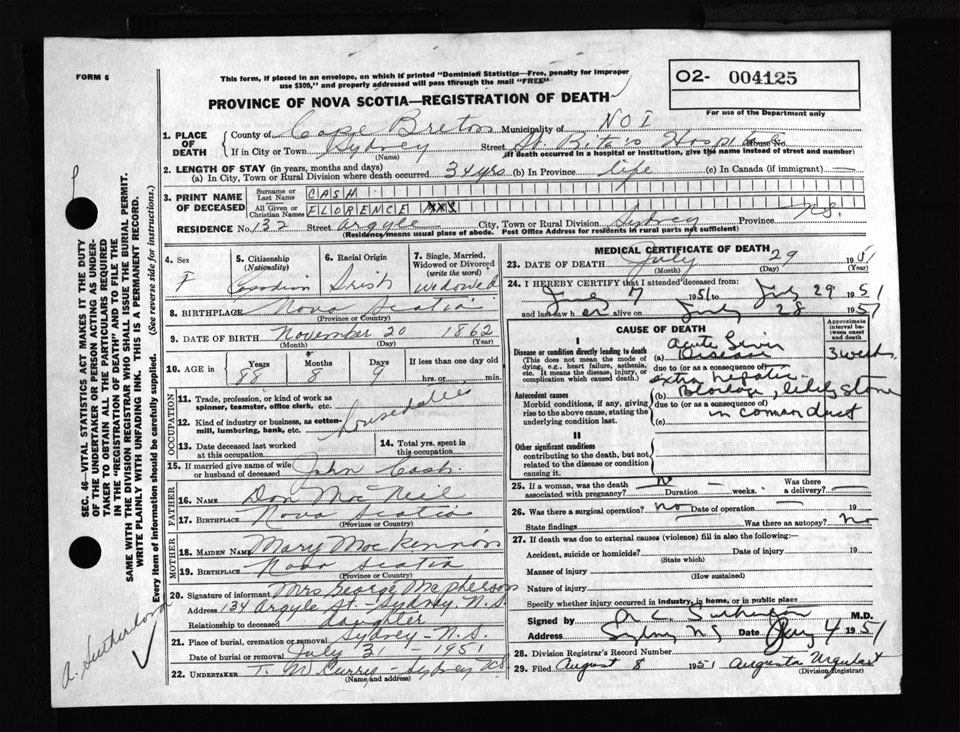 FORM 6
This form, if placed in an envelope, on which if printed "Dominion Statistics—Free, penalty for improper
use $300," and properly addressed will pass tthrough the mail "FREE"
O2- 004125
For use of the Department only
PROVINCE OF NOVA SCOTIA—REGISTRATION OF DEATH
1. PLACE OF DEATH
County of Cape Breton Municipality of NOI
If in City or Town Sydney Street St. Rita's Hospital House No.
(Name) (If death occurred in a hospital or institution, give the name instead of street and number)
2. LENGTH OF STAY (in years, months and days)
(a) In City, Town or Rural Division where death occurred 34 yrs (b) In Province life (c) In Canada (if immigrant) —
3. PRINT NAME OF DECEASED
Surname or Last Name CASH
All Given or Christian Names FLORENCE
RESIDENCE No. 132 Street Argyle City, Town or Rural Division Sydney Province N.S.
(Residence means usual place of abode. Post Office Address for residents in rural parts not sufficient)
4. Sex F
5. Citizenship (Nationality) Canadian
6. Racial Origin Irish
7. Single, Married, Widowed or Divorced (write the word) widowed
8. BIRTHPLACE Nova Scotia
(Province or Country)
9. DATE OF BIRTH November 20 1862
(Month) (Day) (Year)
10. AGE in Years 88 Months 8 Days 9 If less than one day old hrs. or min.
OCCUPATION
11. Trade, profession, or kind of work as spinner, teamster, office clerk, etc.
houseduties
12. Kind of industry or business, as cotton-mill, lumbering, bank, etc.
13. Date deceased last worked at this occupation
14. Total yrs. spent in this occupation
15. If married give name of wife or husband of deceased John Cash
FATHER
16. NAME Don MacNeil
17. BIRTHPLACE Nova Scotia
(Province or Country)
MOTHER
18. MAIDEN NAME Mary MacKinnon
19. BIRTHPLACE Nova Scotia
(Province or Country)
20. Signature of informant Mrs George McPherson
Address 134 Argyle St. - Sydney, N.S.
Relationship to deceased daughter
21. Place of burial, cremation or removal Sydney - N.S.
Date of burial or removal July 31 - 1951
22. UNDERTAKER T. W. Curry - Sydney NS
(Name and address)
MEDICAL CERTIFICATE OF DEATH
23. DATE OF DEATH July 29 1951
(Month) (Day) (Year)
24. I HEREBY CERTIFY that I attended deceased from:
July 7 1951 to July 29 1951
and last saw h er alive on July 28 1951
CAUSE OF DEATH
Approximate interval between onset and death
I
Disease or condition directly leading to death
(This does not mean the mode of dying, e.g., heart failure, asthenia, etc. It means the disease, injury, or complication which caused death.)
(a) Acute Liver Disease 3 weeks
due to (or as a consequence of)
Antecedent causes
Morbid conditions, if any, giving rise to the above cause, stating the underlying condition last.
(b) extra hepatic Blockage, likely stone
due to (or as a consequence of) in common duct
(c)
II
Other significant conditions
contributing to the death, but not related to the disease or condition causing it.
25. If a woman, was the death associated with pregnancy? No Duration — weeks. Was there a delivery? —
26. Was there a surgical operation? no Date of operation — 19
State findings — Was there an autopsy? No
27. If death was due to external causes (violence) fill in also the following:—
Accident, suicide or homicide? Date of injury 19
(State which)
Manner of injury
(How sustained)
Nature of injury
Specify whether injury occurred in industry, in home, or in public place
Signed by Sutherland M.D.
Address Sydney NS Date Aug 4 1951
28. Division Registrar's Record Number
29. Filed August 8 1951 Augusta Urquhart
(Division Registrar)
SEC. 46—VITAL STATISTICS ACT MAKES IT THE DUTY
OF THE UNDERTAKER OR PERSON ACTING AS UNDER-
TAKER TO OBTAIN ALL THE PARTICULARS REQUIRED
IN THE "REGISTRATION OF DEATH" AND TO FILE THE
SAME WITH THE DIVISION REGISTRAR WHO SHALL ISSUE THE BURIAL PERMIT.
WRITE PLAINLY WITH UNFADING INK. THIS IS A PERMANENT RECORD.
Every item of Information should be carefully supplied. (See reverse side for instructions.)
A. Sutherland